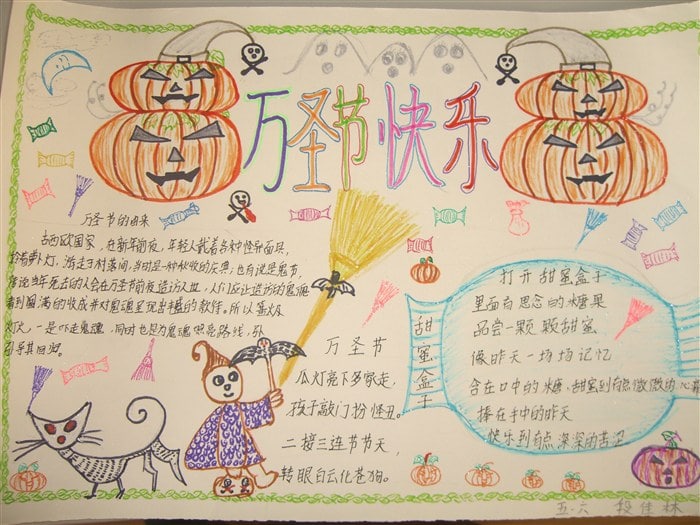 万圣节快乐
万圣节的由来
古西欧国家,在新年前夜,年轻人戴着各种怪异面具,
拎着萝卜灯,游走于村落间,当时是一种秋收的庆典;也有说是鬼节,
传说当年死去的人会在万圣前夜造访人世,人们应让造访的鬼魂
看到圆满的收成并对鬼魂呈现丰盛的款待。所以篝火
灯火,一是吓走鬼魂,同时也是为鬼魂照亮路线,
引导其回归。
万圣节
瓜灯亮下多家走,
孩子敲门扮怪丑。
二接三连节节天,
转眼白云化苍狗。
甜蜜盒子
打开甜蜜盒子
里面有思念的糖果
品尝一颗颗甜蜜
像昨天一场场记忆
含在口中的糖、甜蜜到有点微微的心
捧在手中的昨天
快乐到有点深深的苦涩
五.六 段佳林